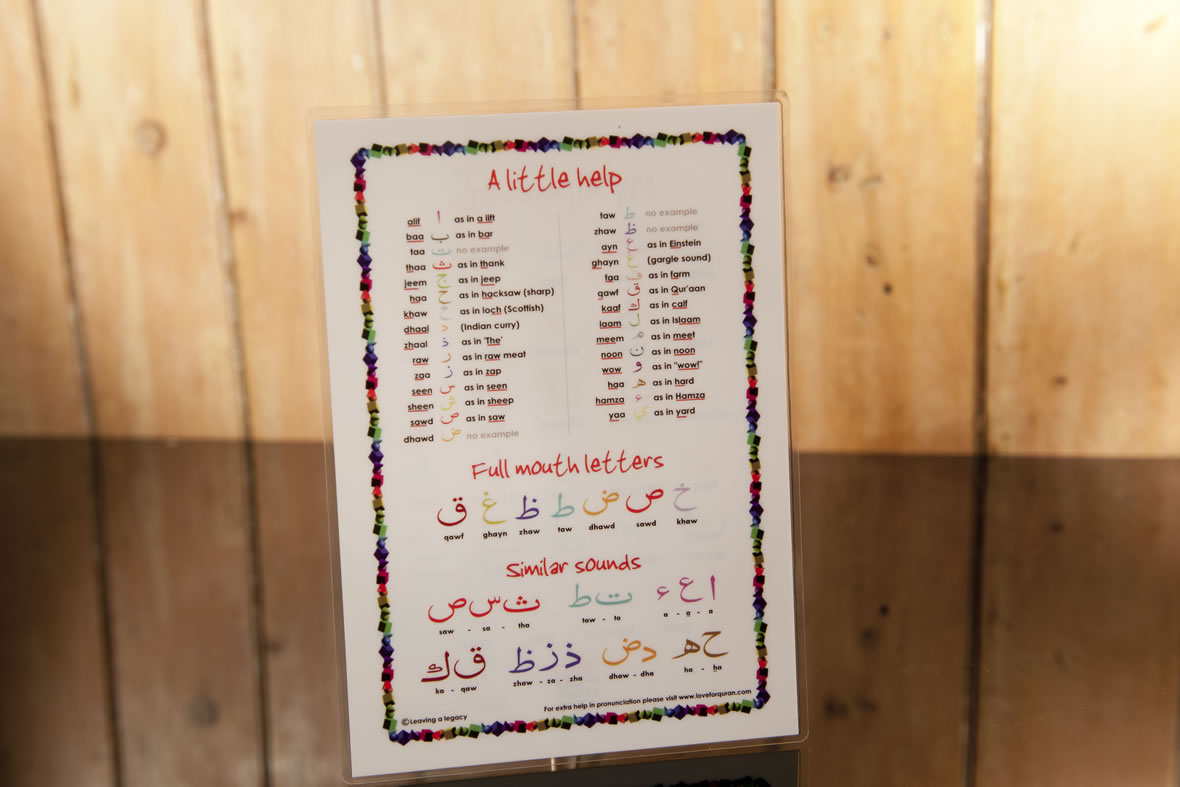 A little help
alif ا as in a lift
baa ب as in bar
taa ت no example
thaa ث as in thank
jeem ج as in jeep
haa ح as in hacksaw (sharp)
khaw خ as in loch (Scottish)
dhaal د (Indian curry)
zhaal ذ as in 'The'
raw ر as in raw meat
zaa ز as in zap
seen س as in seen
sheen ش as in sheep
sawd ص as in saw
dhawd ض no example
taw ط no example
zhaw ظ no example
ayn ع as in Einstein
ghayn غ (gargle sound)
faa ف as in farm
qawf ق as in Qur'aan
kaaf ك as in calf
laam ل as in Islaam
meem م as in meet
noon ن as in noon
wow و as in "wow!"
haa ه as in hard
hamza ء as in Hamza
yaa ي as in yard
Full mouth letters
خ ص ض ط ظ غ ق
qawf ghayn zhaw taw dhawd sawd khaw
Similar sounds
ا ع ء ت ط ث س ص
saw - sa - tha taw - ta a - a - a
ح ه د ض ذ ز ظ ق ك
ka - qaw zhaw - za - zha dhaw - dha ha - ha
For extra help in pronunciation please visit www.loveforquran.com
©Leaving a legacy